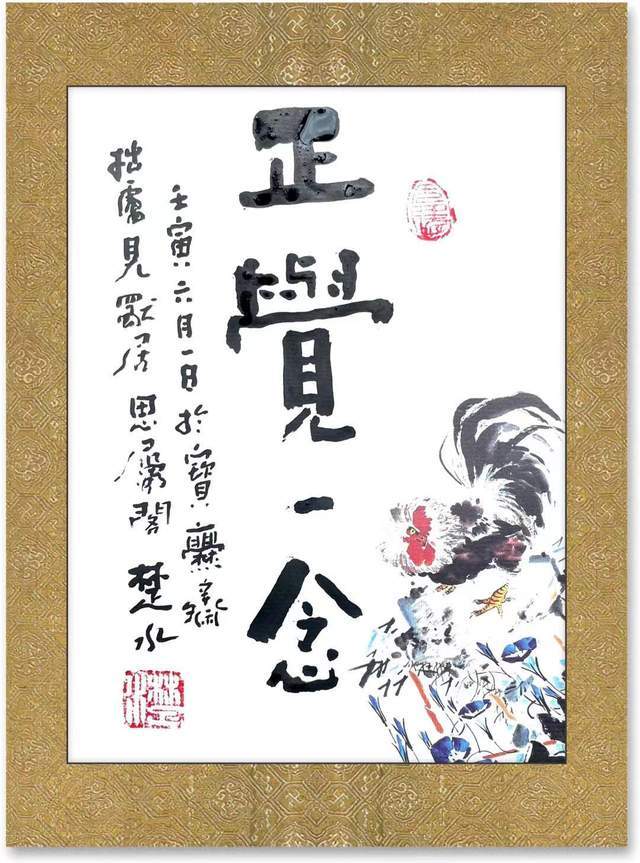 正覺一念
壬寅六月一日於寶爨
拙廬見獸居思閣楚水
楚水